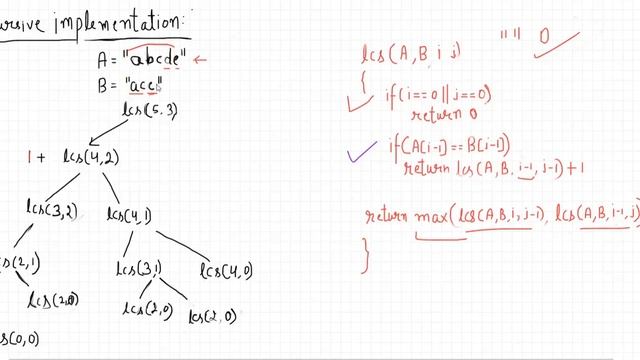 ursive implementation:
A = "abcde" ←
B = "ace"
lcs(5,3)
1 + lcs(4,2)
lcs(3,2) lcs(4,1)
cs(2,1) lcs(3,1) lcs(4,0)
lcs(2,0) lcs(2,0) lcs(2,0)
cs(0,0)
" " 0
lcs(A,B,i,j)
{
if(i==0 || j==0)
return 0
if(A[i-1]==B[i-1])
return lcs(A,B,i-1,j-1)+1
return max(lcs(A,B,i,j-1), lcs(A,B,i-1,j)
}